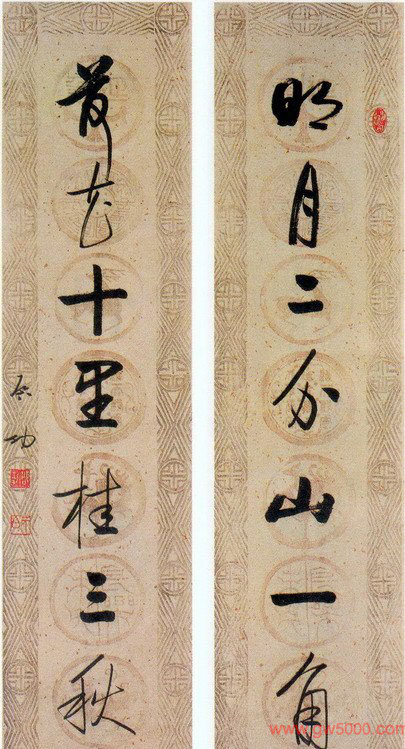 明月二分山一角
荷花十里桂三秋
启功
www.gw5000.com